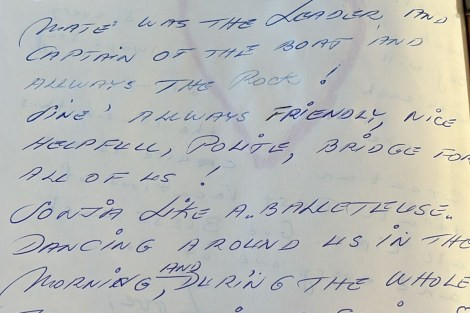 MATE' WAS THE LEADER, AND
CAPTAIN OF THE BOAT AND
ALLWAYS THE ROCK !
SINE' ALLWAYS FRIENDLY, NICE
HELPFULL, POLITE, BRIDGE FOR
ALL OF US !
SONJA LIKE A „BALLETEUSE„
DANCING AROUND US IN THE
MORNING, AND DURING THE WHOLE